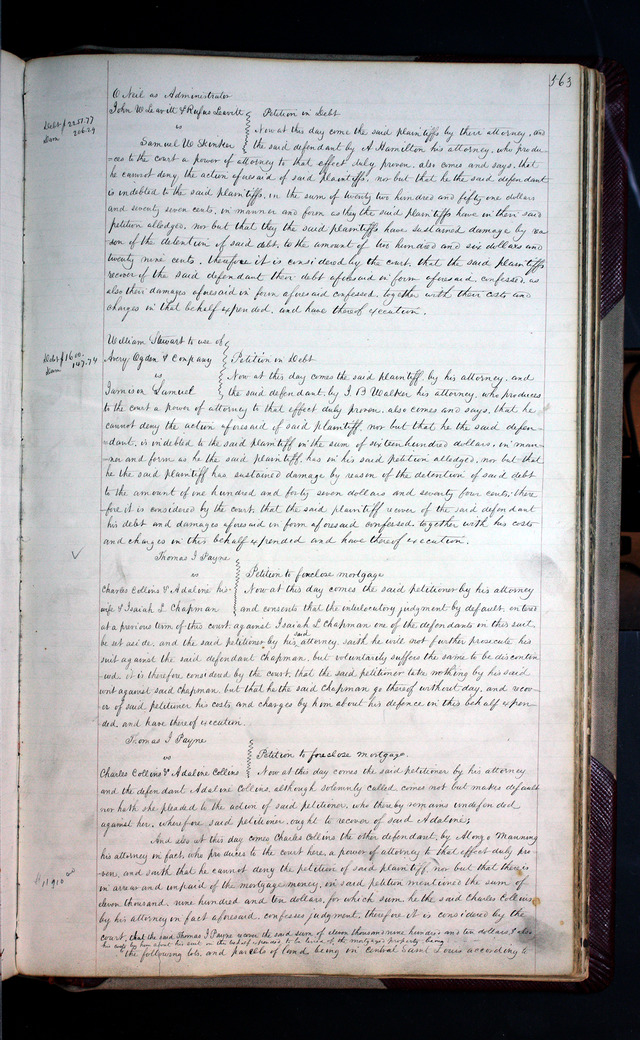 563
O Neil as Administrator
John W Leavitt & Rufus Leavitt } Petition in Debt
Debt $2251.77
Dam 206.29
vs Now at this day come the said plaintiffs by their attorney, and
Samuel W Skinker the said defendant by A Hamilton his attorney, who produ-
-ces to the court a power of attorney to that effect duly proven. also comes and says, that
he cannot deny the action aforesaid of said plaintiffs, nor but that he the said defendant
is indebted to the said plaintiffs, in the sum of twenty two hundred and fifty one dollars
and seventy seven cents, in manner and form as they the said plaintiffs have in their said
petition alledged, nor but that they the said plaintiffs have sustained damage by rea
son of the detention of said debt, to the amount of two hundred and six dollars and
twenty nine cents. therefore it is considered by the court, that the said plaintiffs
recover of the said defendant their debt aforesaid in form aforesaid confessed, as
also their damages aforesaid in form aforesaid confessed, together with their costs and
charges in that behalf expended, and have thereof execution.
William Stewart to use of
Debt $1600.
Dam 147.74
Avery Ogden & Company } Petition in Debt
vs Now at this day comes the said plaintiff, by his attorney, and
Jamison Samuel the said defendant, by J. B Walker his attorney, who produces
to the court a power of attorney to that effect duly proven. also comes and says, that he
cannot deny the action aforesaid of said plaintiff, nor but that he the said defen
dant, is indebted to the said plaintiff in the sum of sixteen hundred dollars, in man-
-ner and form as he the said plaintiff, has in his said petition alledged, nor but that
he the said plaintiff has sustained damage by reason of the detention of said debt
to the amount of one hundred and forty seven dollars and seventy four cents, there
fore it is considered by the court, that the said plaintiff recover of the said defendant
his debt and damages aforesaid in form aforesaid confessed, together with his costs
and charges in this behalf expended and have thereof execution.
Thomas J Payne
vs Petition to foreclose mortgage
Charles Collins & Adaline his Now at this day comes the said petitioner by his attorney
wife & Isaiah L. Chapman and consents that the interlocutory judgment by default, entered
at a previous term of this court, against Isaiah L Chapman one of the defendants in this suit,
be set aside, and the said petitioner by his said attorney, saith he will not further prosecute his
suit against the said defendant Chapman, but voluntarily suffers the same to be discontin
ued. it is therefore considered by the court, that the said petitioner take nothing by his said
writ against said Chapman, but that he the said Chapman go thereof without day, and recov-
er of said petitioner his costs and charges by him about his defence in this behalf expen-
ded, and have thereof execution.
Thomas J Payne
vs Petition to foreclose mortgage.
Charles Collins & Adaline Collins Now at this day comes the said petitioner by his attorney
and the defendant Adaline Collins, although solemnly called, comes not but makes default
nor hath she pleaded to the action of said petitioner, who thereby remains undefended
against her, wherefore said petitioner, ought to recover of said Adaline;
And also at this day comes Charles Collins the other defendant, by Alonzo Manning
his attorney in fact, who produces to the court here, a power of attorney to that effect duly pro-
ven, and saith that he cannot deny the petition of said plaintiff, nor but that there is
$11910 00
in arrear and unpaid of the mortgage money, in said petition mentioned the sum of
eleven thousand, nine hundred and ten dollars, for which sum, he the said Charles Collins,
by his attorney in fact aforesaid, confesses judgment, therefore it is considered by the
court, that the said Thomas J Payne recover the said sum of eleven thousand nine hundred and ten dollars & also
his costs by him about his suit in this behalf expended, to be levied of the mortgaged property, being
the following lots, and parcels of land being in Central Saint Louis according to